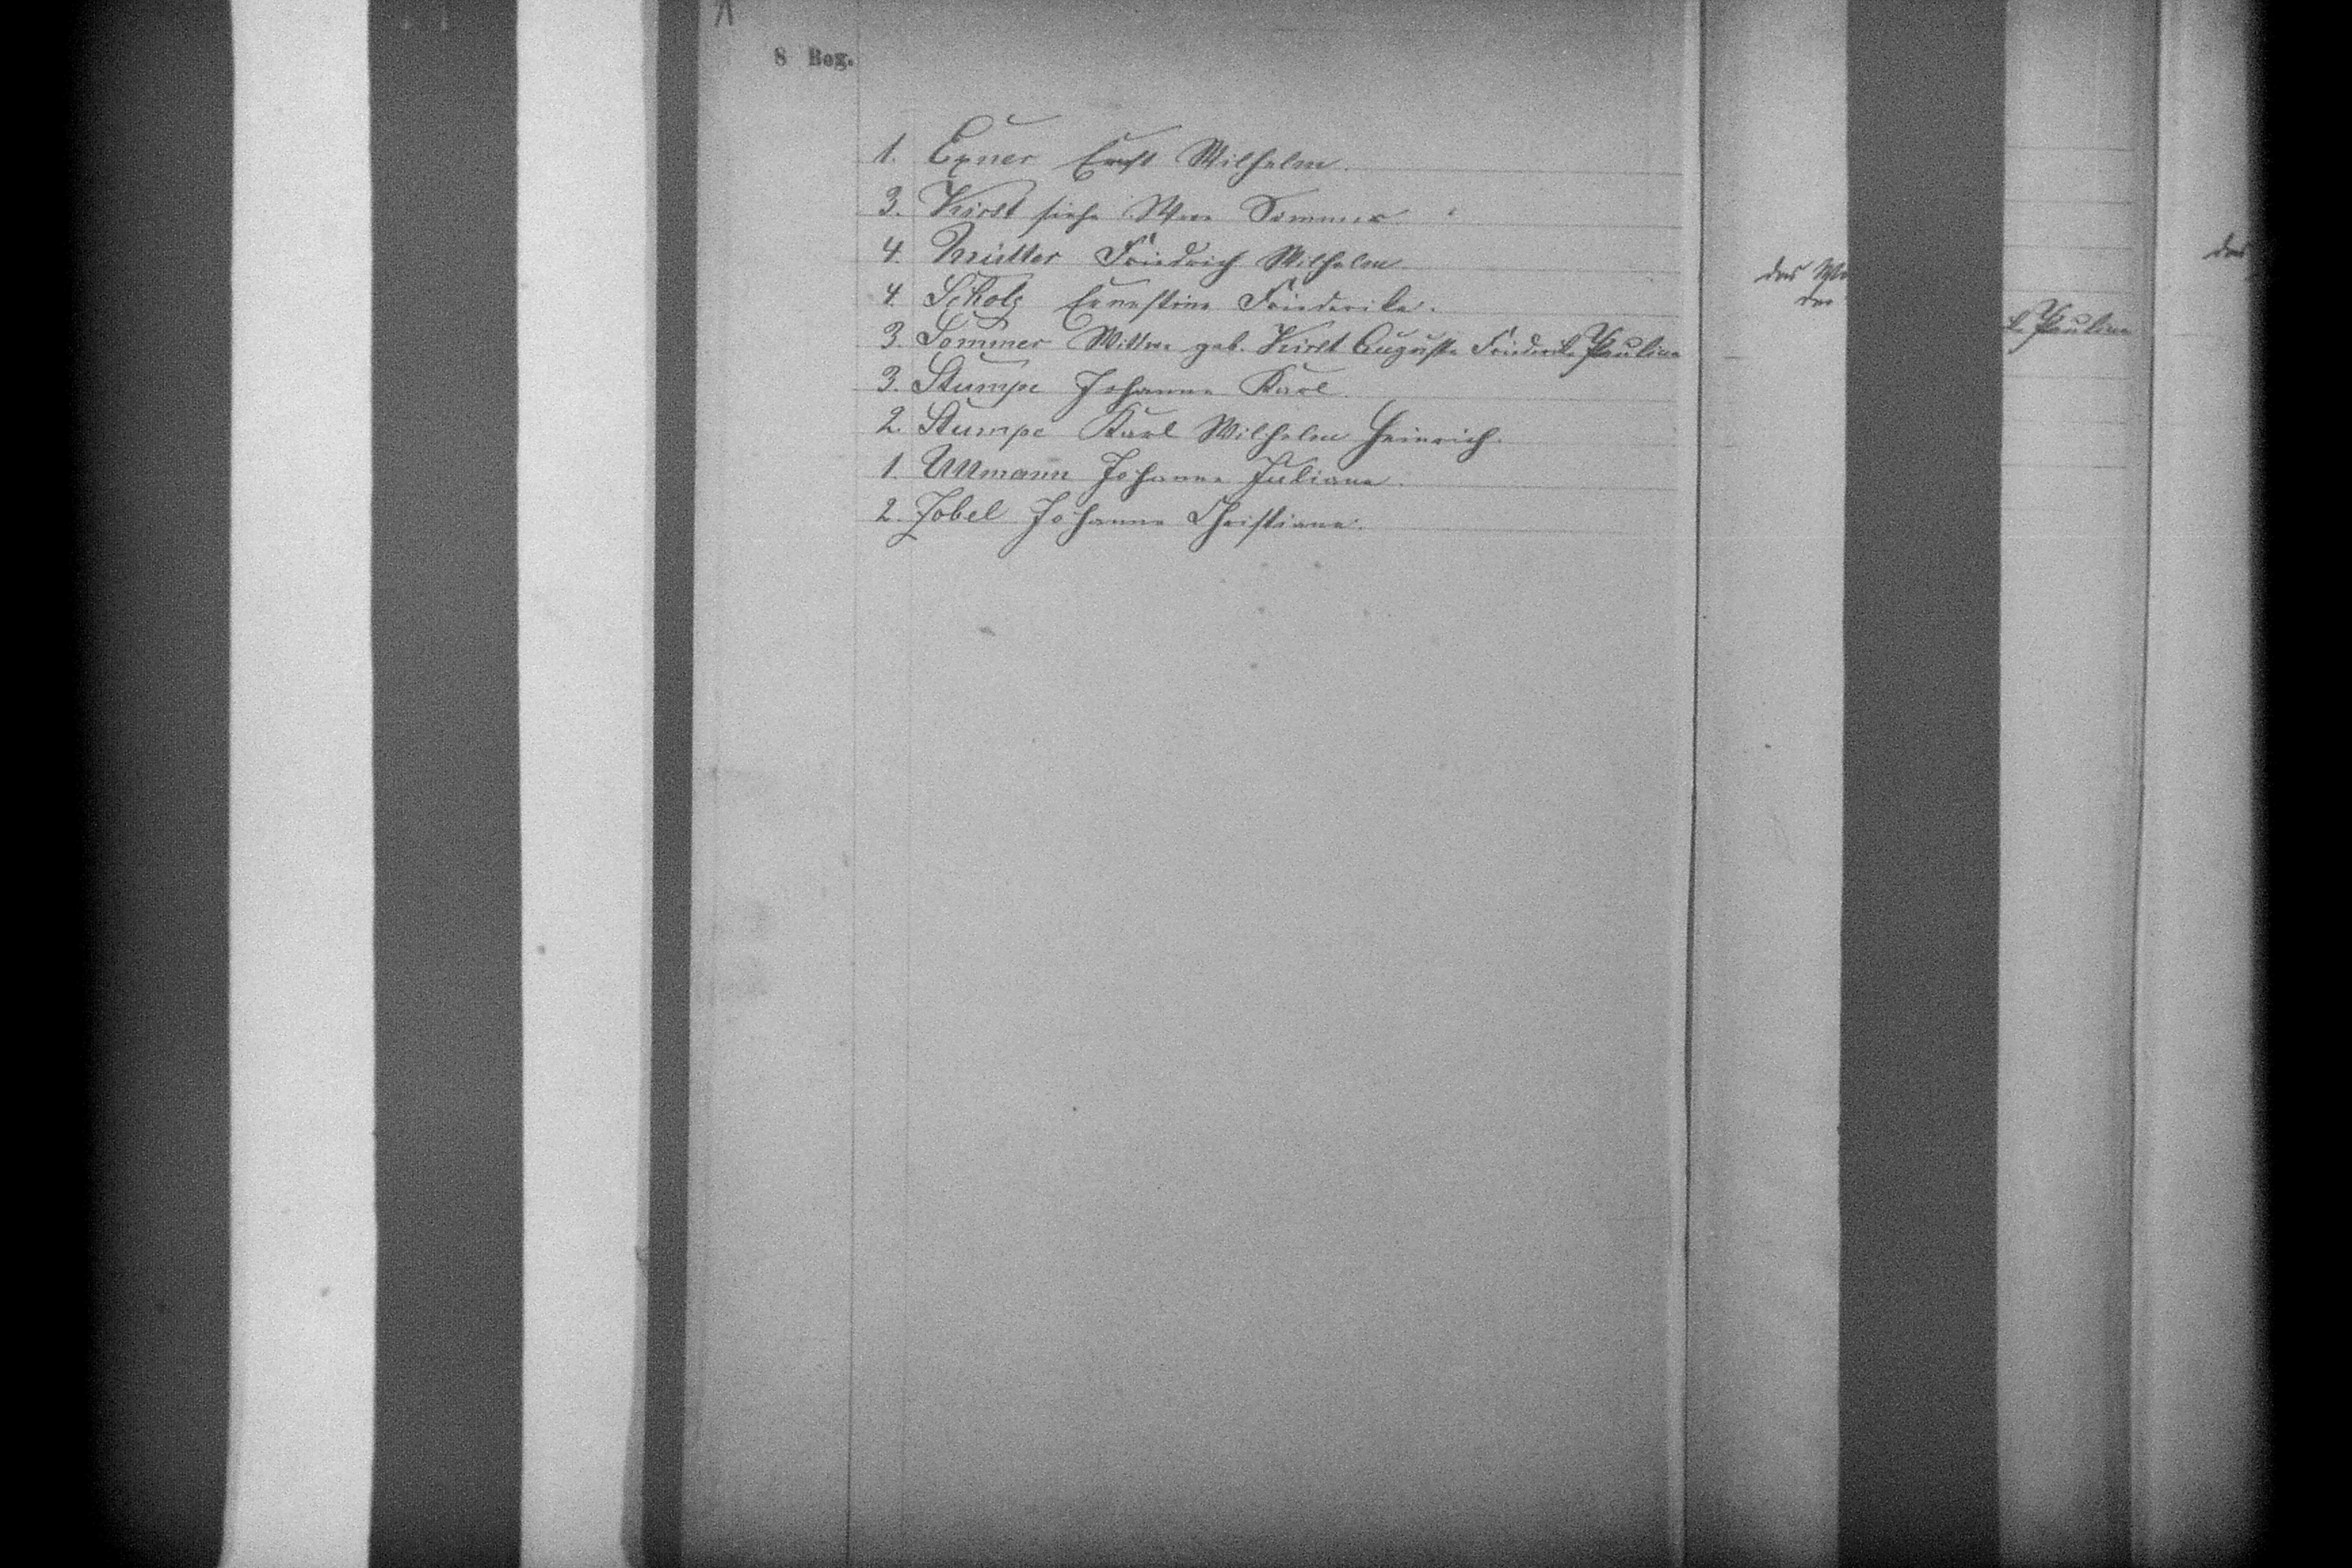 8 Bog.
1. Exner Ernst Wilhelm.
3. Kirst siehe Wwe Sommer
4. Müller Friedrich Wilhelm
4. Scholz Ernestine Friederike.
3. Sommer Wittwe geb. Kirst Auguste Friederike Pauline
3. Stumpe Johanne Karl
2. Stumpe Karl Wilhelm Heinrich.
1. Ullmann Johanne Juliane.
2. Zobel Johanne Christiane.
das
der
Pauline
das